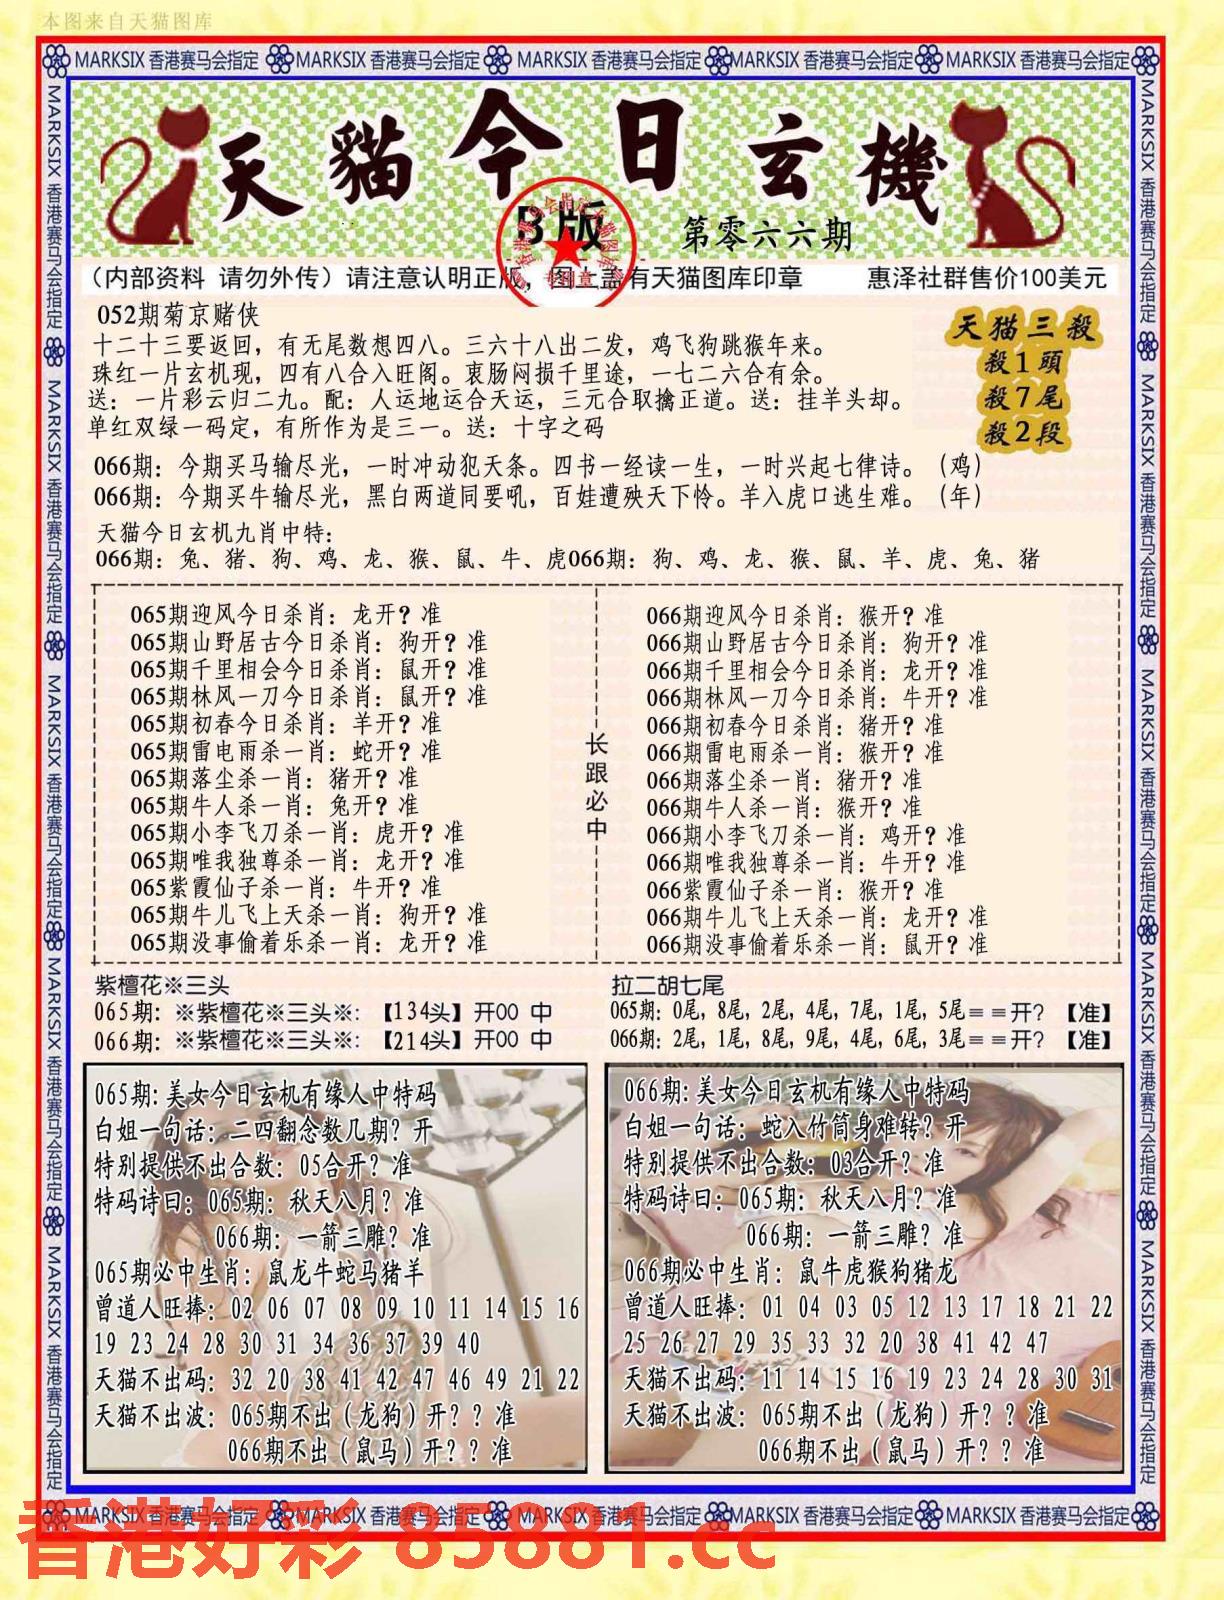 本图来自天猫图库
MARKSIX 香港赛马会指定 MARKSIX 香港赛马会指定 MARKSIX 香港赛马会指定 MARKSIX 香港赛马会指定 MARKSIX 香港赛马会指定
天貓今日玄機
B版
第零六六期
（内部资料 请勿外传）请注意认明正版，图上盖有天猫图库印章 惠泽社群售价100美元
052期菊京赌侠
十二十三要返回，有无尾数想四八。三六十八出二发，鸡飞狗跳猴年来。
珠红一片玄机现，四有八合入旺阁。衷肠闷损千里途，一七二六合有余。
送：一片彩云归二九。配：人运地运合天运，三元合取擒正道。送：挂羊头却。
单红双绿一码定，有所作为是三一。送：十字之码
天猫三殺
殺1頭
殺7尾
殺2段
066期：今期买马输尽光，一时冲动犯天条。四书一经读一生，一时兴起七律诗。（鸡）
066期：今期买牛输尽光，黑白两道同要吼，百娃遭殃天下怜。羊入虎口逃生难。（年）
天猫今日玄机九肖中特：
066期：兔、猪、狗、鸡、龙、猴、鼠、牛、虎066期：狗、鸡、龙、猴、鼠、羊、虎、兔、猪
065期迎风今日杀肖：龙开？准
065期山野居古今日杀肖：狗开？准
065期千里相会今日杀肖：鼠开？准
065期林风一刀今日杀肖：鼠开？准
065期初春今日杀肖：羊开？准
065期雷电雨杀一肖：蛇开？准
065期落尘杀一肖：猪开？准
065期牛人杀一肖：兔开？准
065期小李飞刀杀一肖：虎开？准
065期唯我独尊杀一肖：龙开？准
065紫霞仙子杀一肖：牛开？准
065期牛儿飞上天杀一肖：狗开？准
065期没事偷着乐杀一肖：龙开？准
长跟必中
066期迎风今日杀肖：猴开？准
066期山野居古今日杀肖：狗开？准
066期千里相会今日杀肖：龙开？准
066期林风一刀今日杀肖：牛开？准
066期初春今日杀肖：猪开？准
066期雷电雨杀一肖：猴开？准
066期落尘杀一肖：猪开？准
066期牛人杀一肖：猴开？准
066期小李飞刀杀一肖：鸡开？准
066期唯我独尊杀一肖：牛开？准
066紫霞仙子杀一肖：猴开？准
066期牛儿飞上天杀一肖：龙开？准
066期没事偷着乐杀一肖：鼠开？准
紫檀花※三头
065期：※紫檀花※三头※:【134头】开00 中
066期：※紫檀花※三头※:【214头】开00 中
拉二胡七尾
065期：0尾，8尾，2尾，4尾，7尾，1尾，5尾＝＝开？【准】
066期：2尾，1尾，8尾，9尾，4尾，6尾，3尾＝＝开？【准】
065期：美女今日玄机有缘人中特码
白姐一句话：二四翻念数几期？开
特别提供不出合数：05合开？准
特码诗曰：065期：秋天八月？准
066期：一箭三雕？准
065期必中生肖：鼠龙牛蛇马猪羊
曾道人旺捧：02 06 07 08 09 10 11 14 15 16
19 23 24 28 30 31 34 36 37 39 40
天猫不出码：32 20 38 41 42 47 46 49 21 22
天猫不出波：065期不出（龙狗）开？？准
066期不出（鼠马）开？？准
066期：美女今日玄机有缘人中特码
白姐一句话：蛇入竹筒身难转？开
特别提供不出合数：03合开？准
特码诗曰：065期：秋天八月？准
066期：一箭三雕？准
066期必中生肖：鼠牛虎猴狗猪龙
曾道人旺捧：01 04 03 05 12 13 17 18 21 22
25 26 27 29 35 33 32 20 38 41 42 47
天猫不出码：11 14 15 16 19 23 24 28 30 31
天猫不出波：065期不出（龙狗）开？？准
066期不出（鼠马）开？？准
MARKSIX 香港赛马会指定 MARKSIX 香港赛马会指定 MARKSIX 香港赛马会指定 MARKSIX 香港赛马会指定 MARKSIX 香港赛马会指定
MARKSIX 香港赛马会指定 MARKSIX 香港赛马会指定 MARKSIX 香港赛马会指定 MARKSIX 香港赛马会指定 MARKSIX 香港赛马会指定
MARKSIX 香港赛马会指定 MARKSIX 香港赛马会指定 MARKSIX 香港赛马会指定 MARKSIX 香港赛马会指定 MARKSIX 香港赛马会指定
香港好彩 85881.cc